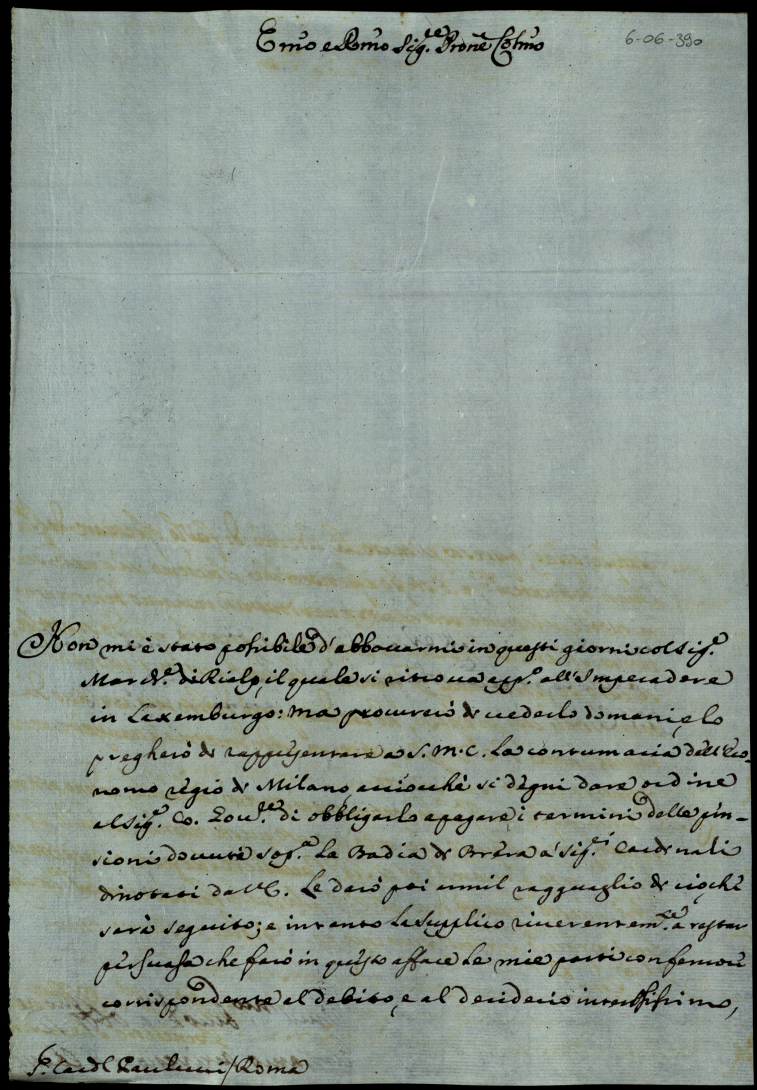 Emo e Rmo Sig.re Prone Colmo
6-06-390
Non mi è stato possibile d'abboccarmi in questi giorni col Sig.r
March.e di Rialp, il quale si ritroua app.o all'Imperadore
in Laxemburgo: ma procurerò di uederlo domani, e lo
pregherò di rappresentare a S. M. C. la contumacia dell'Eco-
nomo regio di Milano acciochè si degni dare ordine
al Sig.r Co. Gou.re di obbligarlo a pagare i termini delle pen-
sioni douute sop.a la Badia di Brera a' Sig.ri Cardinali
dinotati da V. E. Le darò poi umil ragguaglio di ciò, che
sarà seguito; e intanto la supplico riuerentem.te a restar
persuasa che farò in questo affare le mie parti con feruore
corrispondente al debito, e al desiderio intentissimo,
S.r Cardl Paulucci / Roma